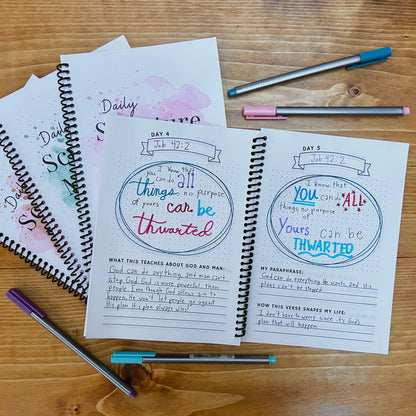 Daily
Daily
Daily
Scripture
DAY 4
Job 42:2
I know that
you can do all
things, no purpose
of yours can be
thwarted
WHAT THIS TEACHES ABOUT GOD AND MAN:
God can do anything, and man can't
stop God. God is more powerful than
people. Even though God allows sin to
happen, He won't let people go against
his plan. His plan always wins!
DAY 5
Job 42:2
I know that
YOU can do ALL
things, no purpose
of
Yours can be
THWARTED
MY PARAPHRASE:
God can do everything he wants, and his
plans can't be stopped.
HOW THIS VERSE SHAPES MY LIFE:
I don't have to worry since it's God's
plan that will happen.